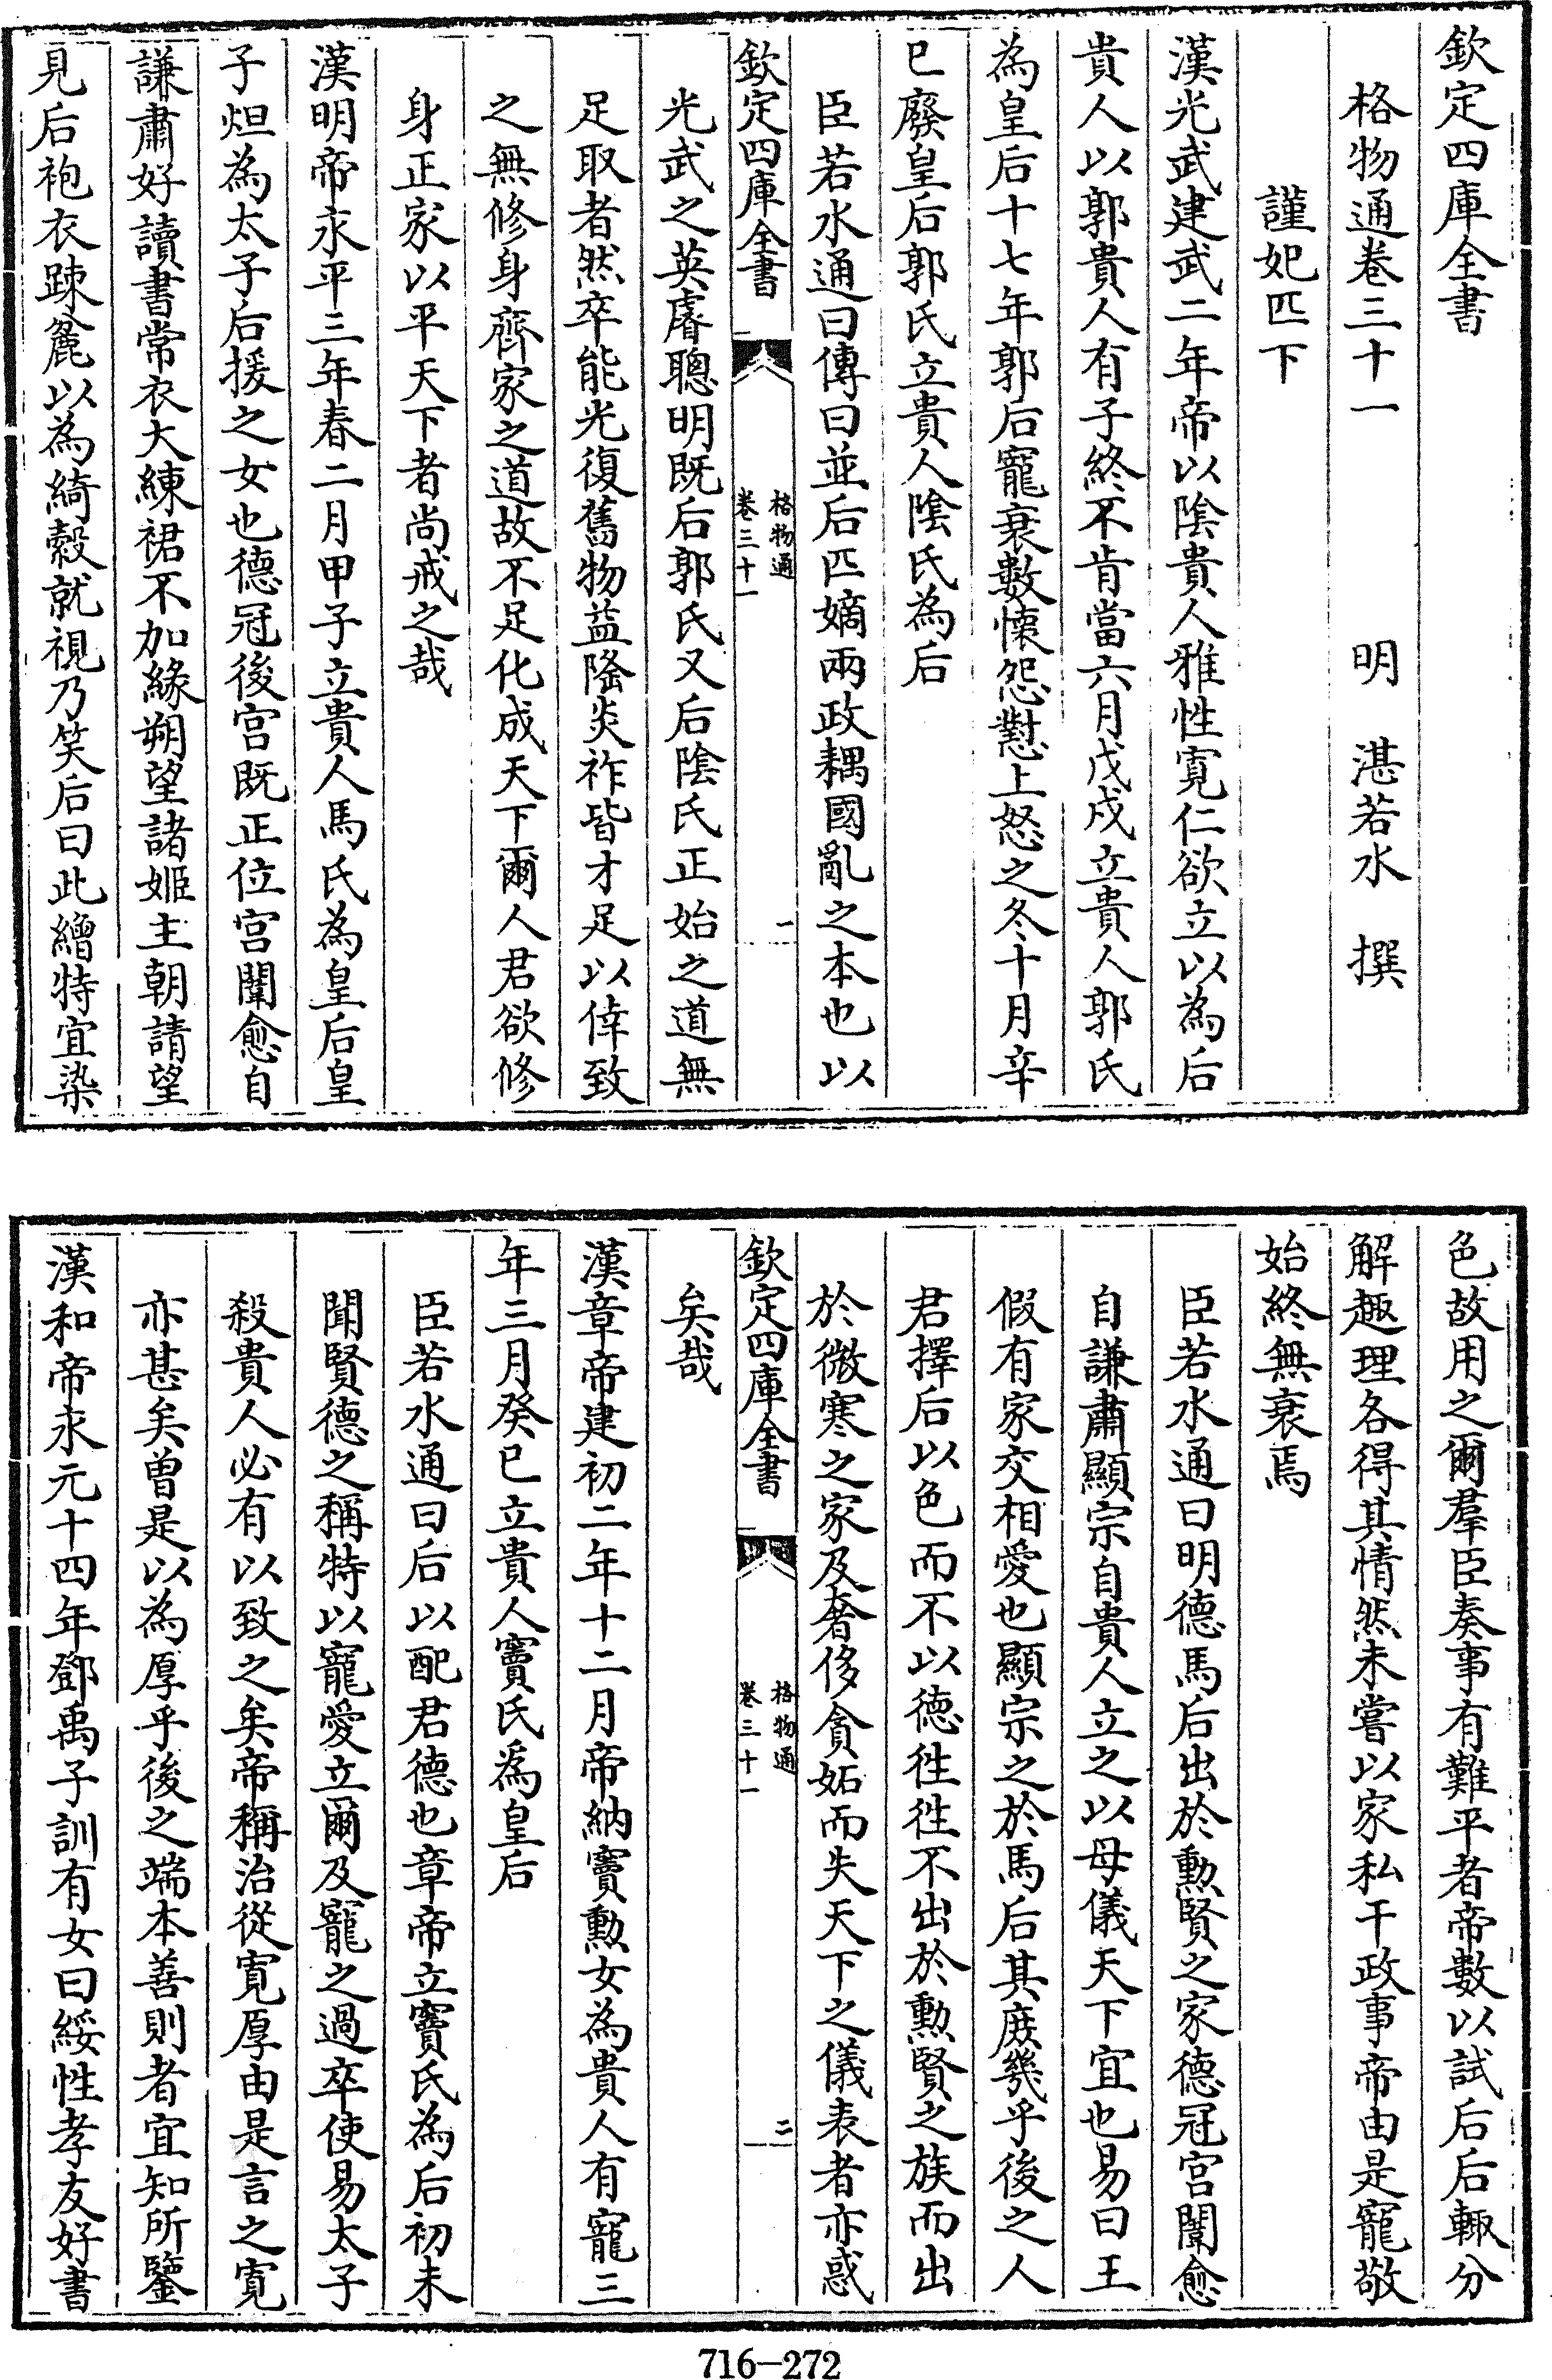 欽定四庫全書
格物通卷三十一　明　湛若水　撰
謹妃匹下
漢光武建武二年帝以陰貴人雅性寛仁欲立以為后
貴人以郭貴人有子終不肯當六月戊戍立貴人郭氏
為皇后十七年郭后寵衰數懐怨懟上怒之冬十月辛
巳廢皇后郭氏立貴人陰氏為后
臣若水通曰傳曰並后匹嫡兩政耦國亂之本也以
欽定四庫全書
格物通
卷三十一
一
光武之英睿聰明既后郭氏又后陰氏正始之道無
足取者然卒能光復舊物益隆炎祚皆才足以倖致
之無修身齊家之道故不足化成天下爾人君欲修
身正家以平天下者尚戒之哉
漢明帝永平三年春二月甲子立貴人馬氏為皇后皇
子炟為太子后援之女也德冠後宫既正位宫闈愈自
謙肅好讀書常衣大練裙不加緣朔望諸姬主朝請望
見后袍衣踈麄以為綺縠就視乃笑后曰此繒特宜染
色故用之爾羣臣奏事有難平者帝數以試后后輙分
解趣理各得其情然未嘗以家私干政事帝由是寵敬
始終無衰焉
臣若水通曰明德馬后出於勲賢之家德冠宫闈愈
自謙肅顯宗自貴人立之以母儀天下宜也易曰王
假有家交相愛也顯宗之於馬后其庶幾乎後之人
君擇后以色而不以德徃徃不出於勲賢之族而出
於微寒之家及奢侈貪妬而失天下之儀表者亦惑
欽定四庫全書
格物通
卷三十一
二
矣哉
漢章帝建初二年十二月帝納竇勲女為貴人有寵三
年三月癸巳立貴人竇氏爲皇后
臣若水通曰后以配君德也章帝立竇氏為后初未
聞賢德之稱特以寵愛立爾及寵之過卒使易太子
殺貴人必有以致之矣帝稱治從寛厚由是言之寛
亦甚矣曽是以為厚乎後之端本善則者宜知所鑒
漢和帝永元十四年鄧禹子訓有女曰綏性孝友好書
716-272